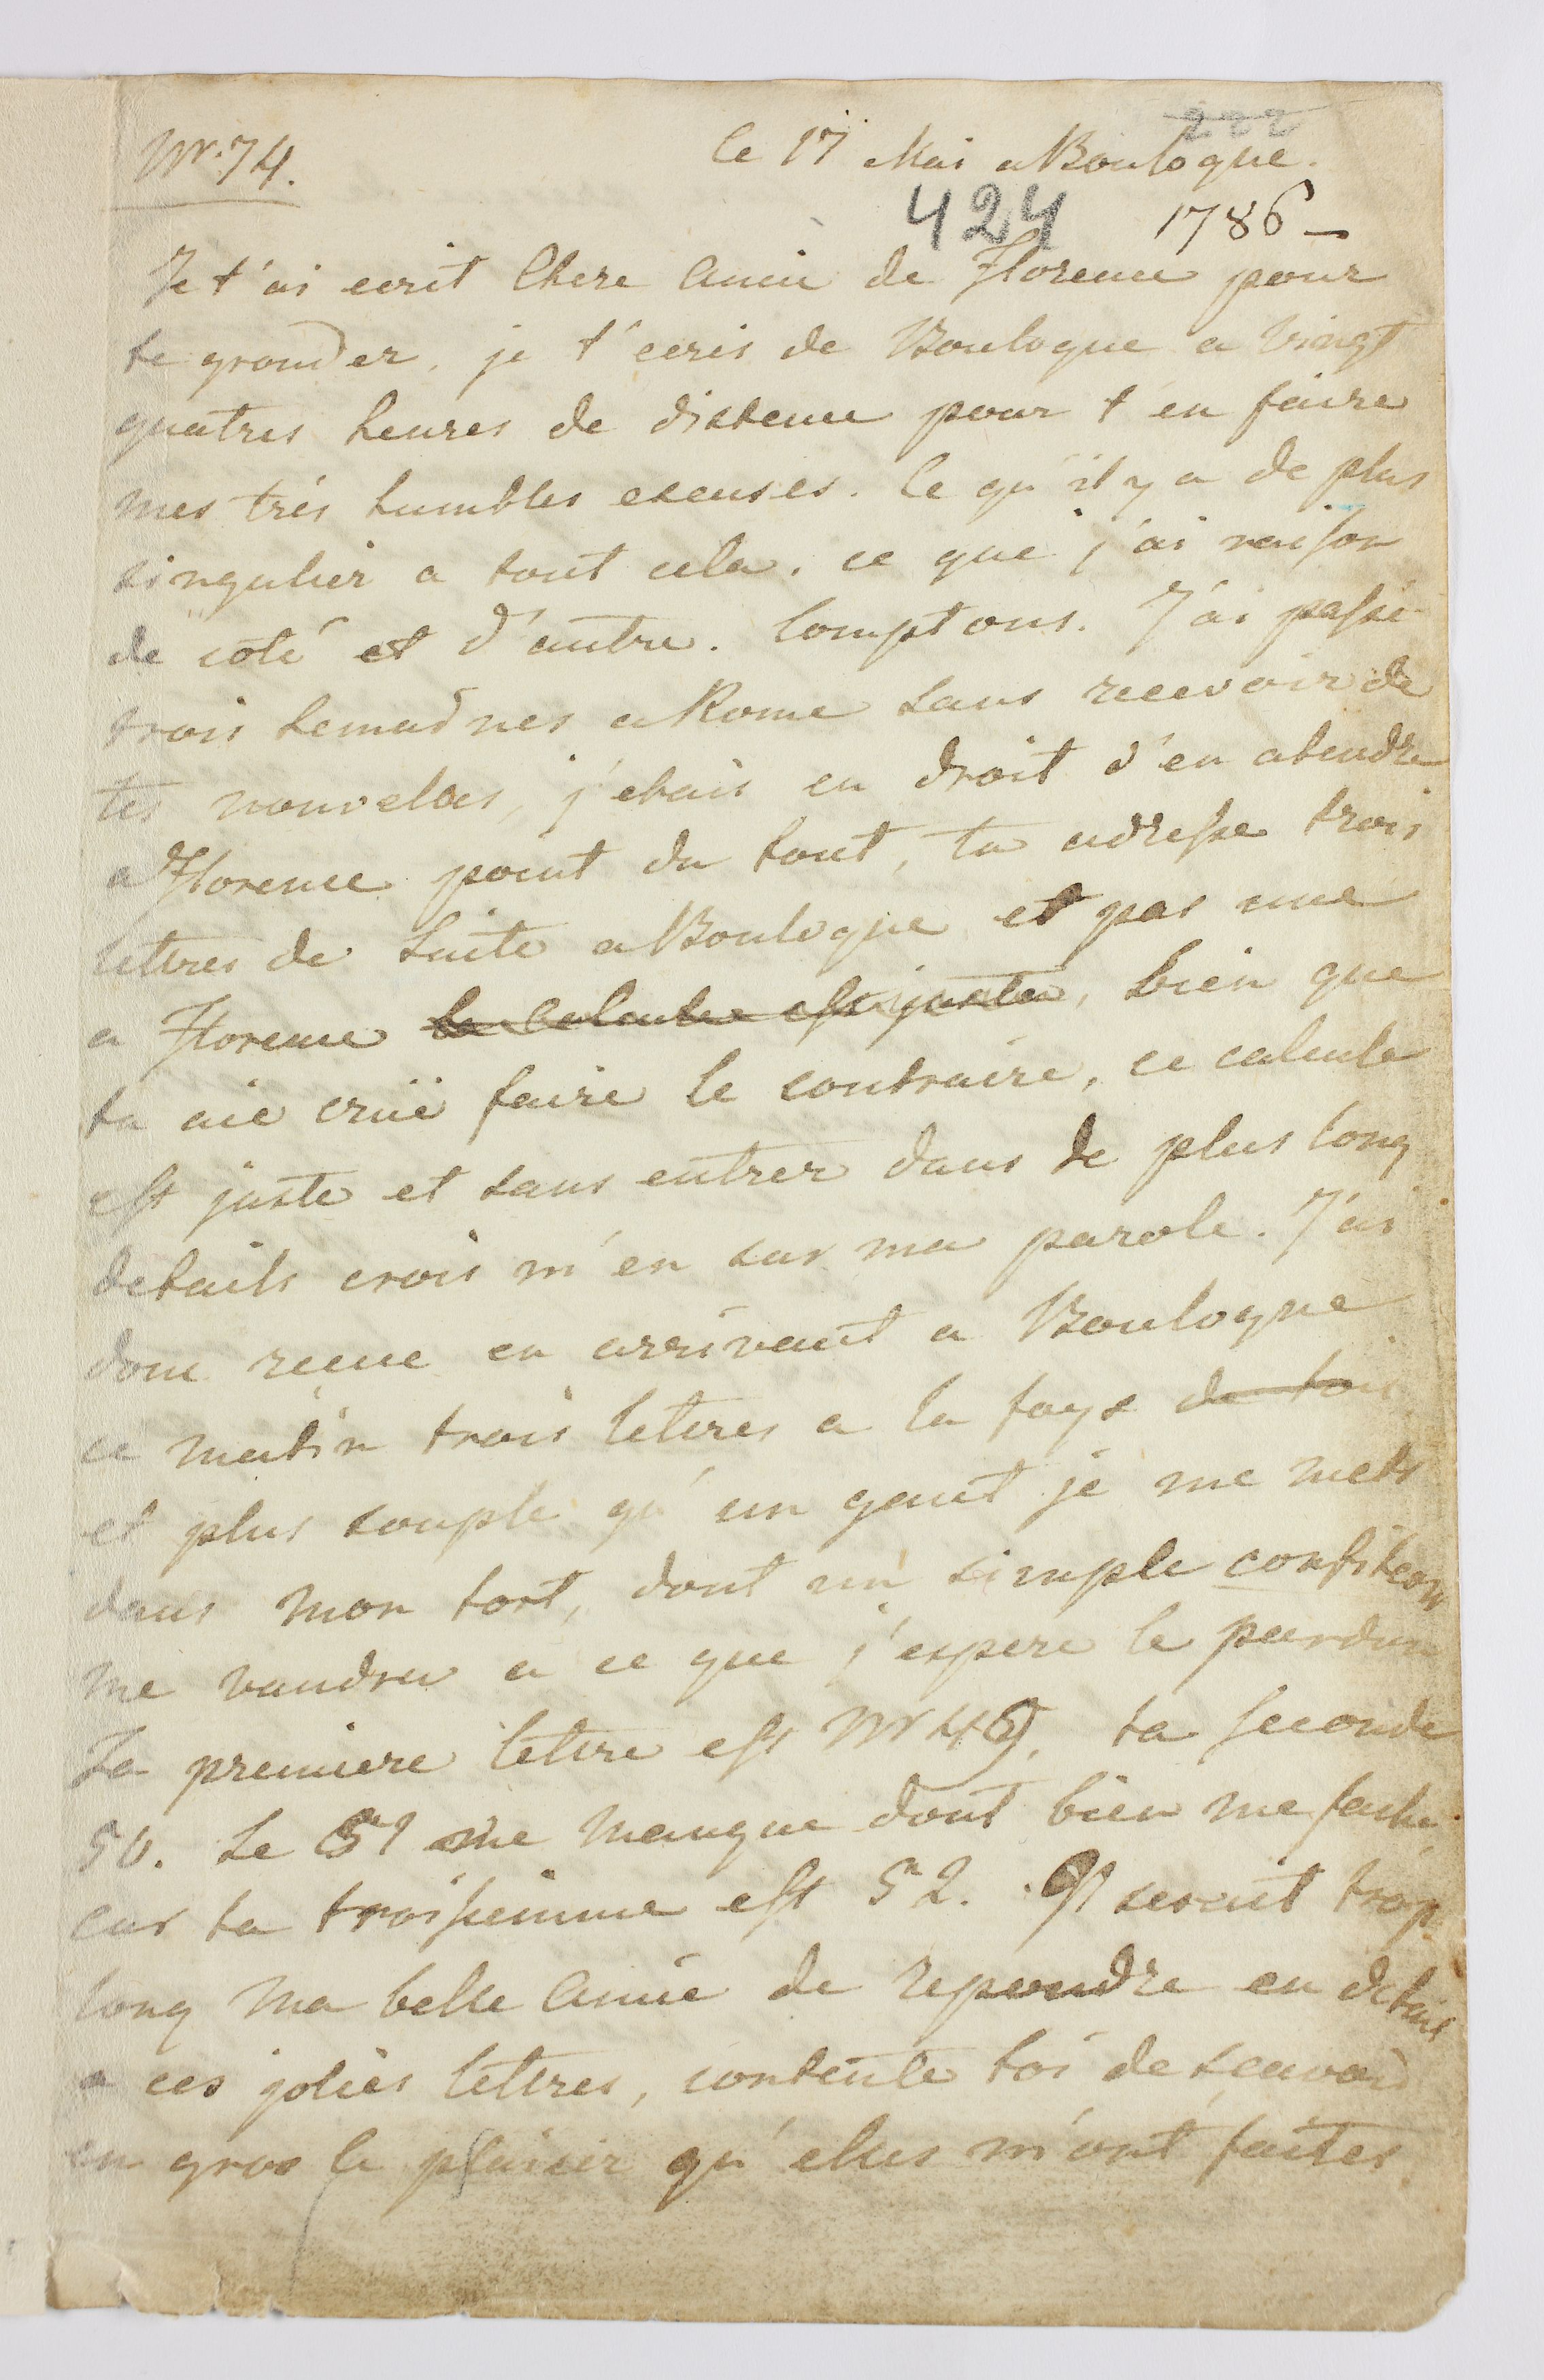 222
Nr. 74.
le 17 Mai a Boulogne.
424 1786 –
Je t'ai ecrit Chere Amie de Florence pour
te gronder. je t'ecris de Boulogne a vingt
quatres heures de distence pour t'en faire
mes trés humbles excuses. Ce qu'il y a de plus
singulier a tout cela. ce que j'ai raison
de coté et d'autre. Comptons. J'ai passé
trois semaines a Rome sans recevoir de
tes nouvelles, j'etais en droit d'en atendre
a Florence point du tout, tu adresse trois
lettres de suite a Boulogne et pas une
a Florence le Calcule est juste, bien que
tu aie crüe faire le contraire, ce calcule
est juste et sans entrer dans de plus long
details crois m'en sur ma parole. J'ai
donc recue en arrivant a Boulogne
ce matin trois lettres a la foye de toi
et plus souple qu'un gant je me mets
dans mon tort, dont un simple confiteor
me vaudra a ce que j'espere le pardon
Ta premiere lettre est Nr 49, ta seconde
50. Le 51 me manque dont bien me fache
car ta troisieme est 52. Il seroit trop
long ma belle Amie de repondre en detail
a ces jolies lettres, contente toi de scavoir
en gros le plaisir qu'elles m'ont faites